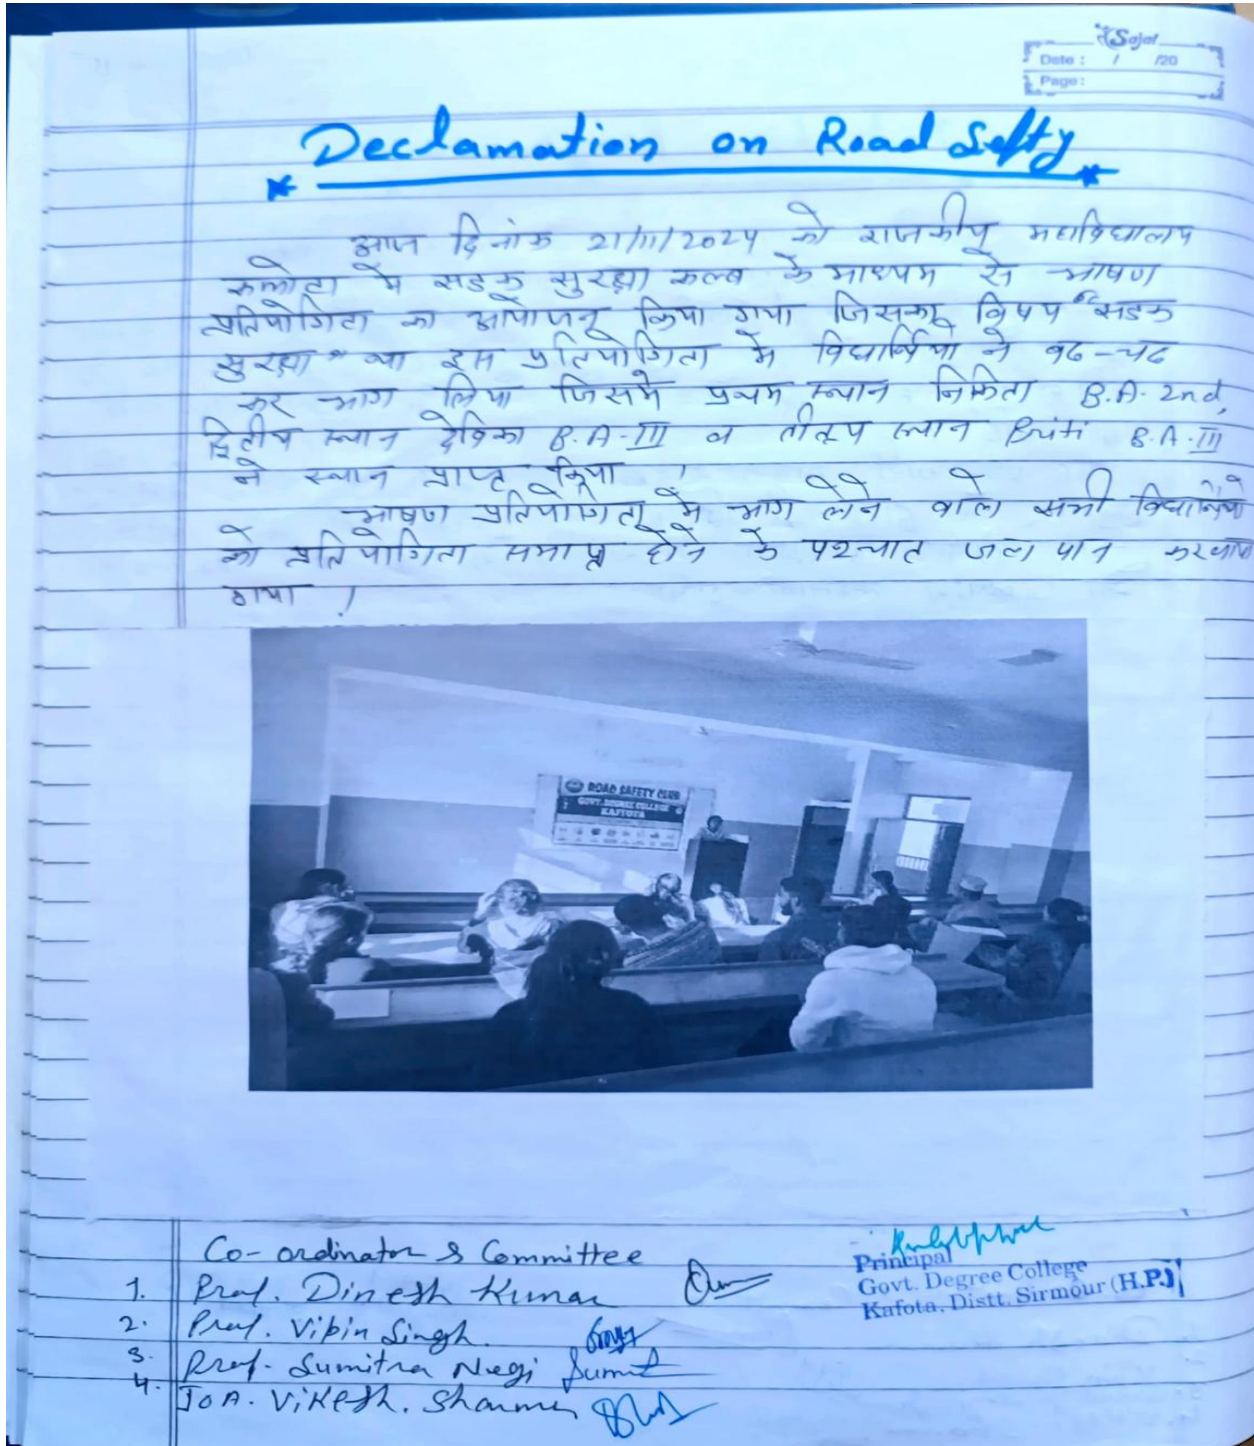 Sajal
Date : / /20
Page:
Declamation on Road Sefty
आज दिनांक 21/11/2024 को राजकीय महाविद्यालय
कफोटा मे सडक सुरक्षा क्लब के माध्यम से भाषण
प्रतियोगिता का आयोजन किया गया जिसका विषय "सडक
सुरक्षा" था इस प्रतियोगिता मे विद्यार्थियो ने बढ-चढ
कर भाग लिया जिसमे प्रथम स्थान निकिता B.A. 2nd,
द्वितीय स्थान देविका B.A-III व तीतय स्थान Priti B.A.III
ने स्थान प्राप्त किया ।
भाषण प्रतियोगिता मे भाग लेने वाले सभी विद्यार्थियो
को प्रतियोगिता समाप्त होने के पश्चात जल पान करवाया
गया ।
ROAD SAFETY CLUB
GOVT. DEGREE COLLEGE
KAFFOTA
Co-ordinator & Committee
1. Prof. Dinesh Kumar
2. Prof. Vipin Singh.
3. Prof. Sumitra Negi Sumit
4. JOA. Vikesh. Sharma
Principal
Govt. Degree College
Kafota, Distt. Sirmour (H.P.)